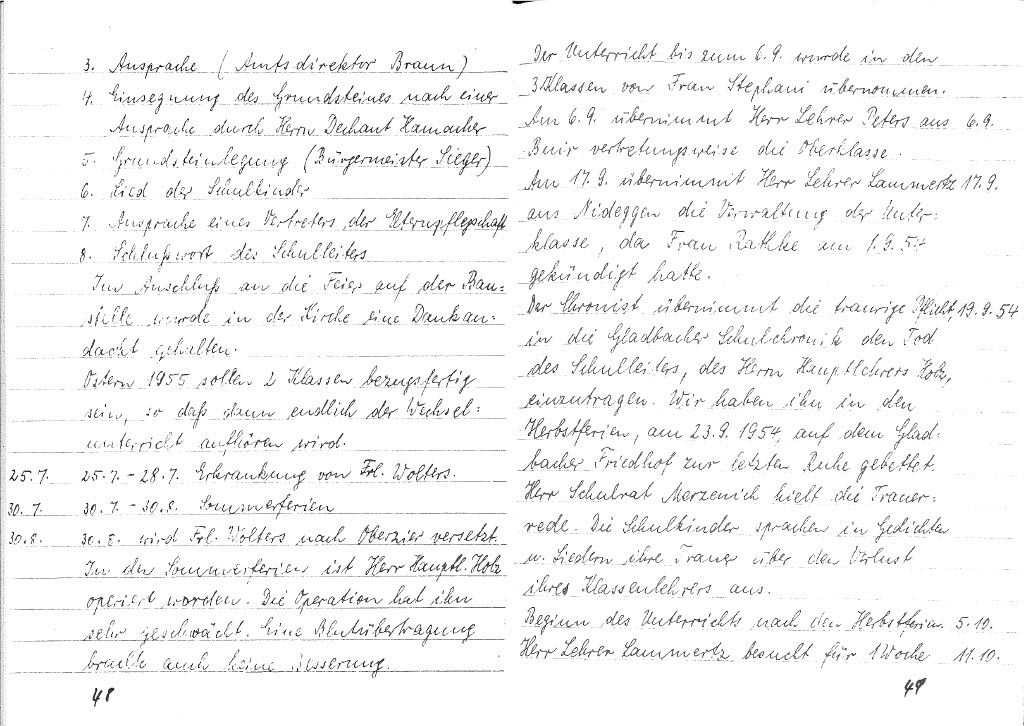 3. Ansprache (Amtsdirektor Braun)
4. Einsegnung des Grundsteines nach einer
Ansprache durch Herrn Dechant Hamacher
5. Grundsteinlegung (Bürgermeister Sieger)
6. Lied der Schulkinder
7. Ansprache eines Vertreters der Elternpflegschaft
8. Schlußwort des Schulleiters
Im Anschluß an die Feier auf der Bau=
stelle wurde in der Kirche eine Dankan=
dacht gehalten.
Ostern 1955 sollen 2 Klassen bezugsfertig
sein, so daß dann endlich der Wechsel=
unterricht aufhören wird.
25.7. 25.7. - 28.7. Erkrankung von Frl. Wolters.
30.7. 30.7. - 30.8. Sommerferien
30.8. 30.8. wird Frl. Wolters nach Oberzier versetzt.
In den Sommerferien ist Herr Hauptl. Holz
operiert worden. Die Operation hat ihn
sehr geschwächt. Eine Blutübertragung
brachte auch keine Besserung.
48
Der Unterricht bis zum 6.9. wurde in den
3 Klassen von Frau Stephani übernommen.
Am 6.9. übernimmt Herr Lehrer Peters aus 6.9.
Buir vertretungsweise die Oberklasse.
Am 17.9. übernimmt Herr Lehrer Lammertz 17.9.
aus Nideggen die Verwaltung der Unter=
klasse, da Frau Rathke am 1.9.54
gekündigt hatte.
Der Chronist übernimmt die traurige Pflicht, 19.9.54
in die Gladbacher Schulchronik den Tod
des Schulleiters, des Herrn Hauptlehrers Holz,
einzutragen. Wir haben ihn in den
Herbstferien, am 23.9.1954, auf dem Glad=
bacher Friedhof zur letzten Ruhe gebettet.
Herr Schulrat Merzenich hielt die Trauer=
rede. Die Schulkinder sprachen in Gedichten
u. Liedern ihre Trauer über den Verlust
ihres Klassenlehrers aus.
Beginn des Unterrichts nach den Herbstferien. 5.10.
Herr Lehrer Lammertz besucht für 1 Woche 11.10.
49